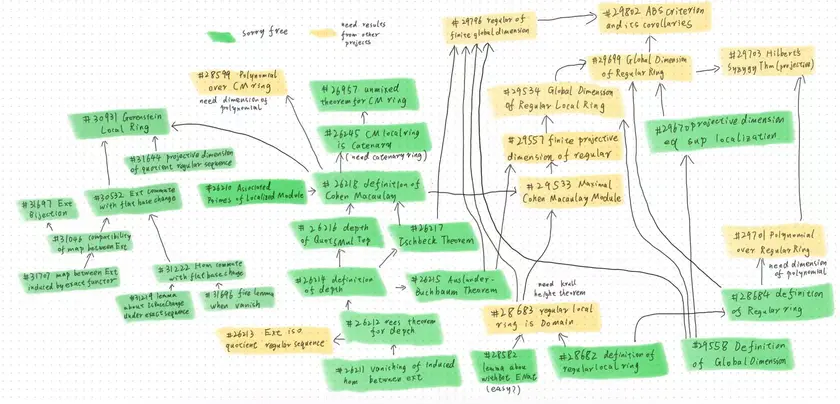 sorry free
need results
from other
projects
#29796 regular of
finite global dimension
#29802 ABS criterion
and its corollaries
#28599 Polynomial
over CM ring
need dimension of
polynomial
#26957 unmixed
theorem for CM ring
#29699 Global Dimension
of Regular Ring
#29703 Hilbert's
Syzygy Thm (projective)
#29534 Global Dimension
of Regular Local Ring
#30931 Gorenstein
Local Ring
#26245 CM local ring
is Catenary
(need catenary ring)
#29557 finite projective
dimension of regular
projective dimension
eq sup localization
#31644 projective dimension
of quotient regular sequence
#31697 Ext
Bijection
#30532 Ext commute
with flat base change
#26210 Associated
Primes of Localized Module
#26218 definition of
Cohen Macaulay
#29533 Maximal
Cohen Macaulay Module
#31046 compatibility
of map between Ext
#26216 depth
of QuotSMulTop
#26217
Ischbeck Theorem
#29701 Polynomial
over Regular Ring
need dimension
of polynomial
#31707 map between Ext
induced by exact functor
#31222 Hom commute
with flat base change
#26214 definition
of depth
#26215 Auslander-
Buchbaum Theorem
need krull
height theorem
#31219 lemma
about IsBaseChange
under exact sequence
#31696 five lemma
when vanish
#28683 regular local
ring is Domain
#28684 definition
of Regular ring
#26213 Ext iso
quotient regular sequence
#26212 rees theorem
for depth
#26211 vanishing of induced
hom between ext
#28582
lemma abou
WithBot ENat
(easy?)
#28682 definition of
regular local ring
#29558 Definition
of Global Dimension